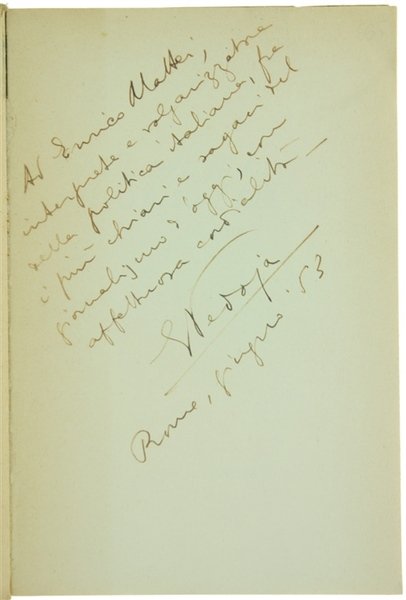 Ad Enrico Mattei,
interprete e volgarizzatore
della politica italiana, fra
i più chiari e sagaci del
giornalismo d'oggi, con
affettuosa cordialità
GPerdoja
Roma, giugno '53